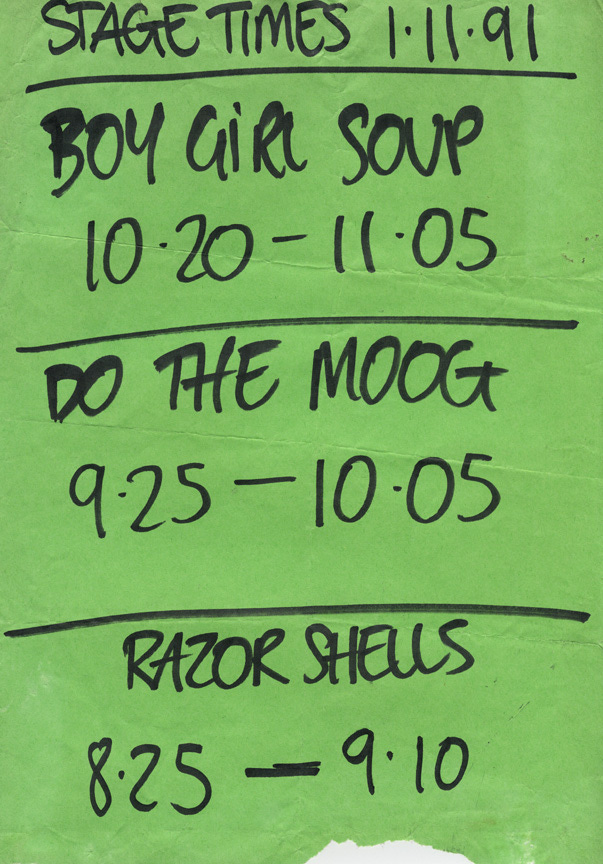 STAGE TIMES 1.11.91
BOY GIRL SOUP
10.20 - 11.05
DO THE MOOG
9.25 - 10.05
RAZOR SHELLS
8.25 - 9.10